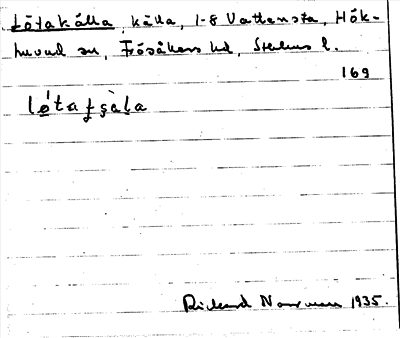 Lötakälla, källa, 1-8 Vattensta, Hök-
huvud sn, Frösåkers hd, Sthlms l.
169
lø̀taʃsàl̥a
Rickard Norrman 1935.